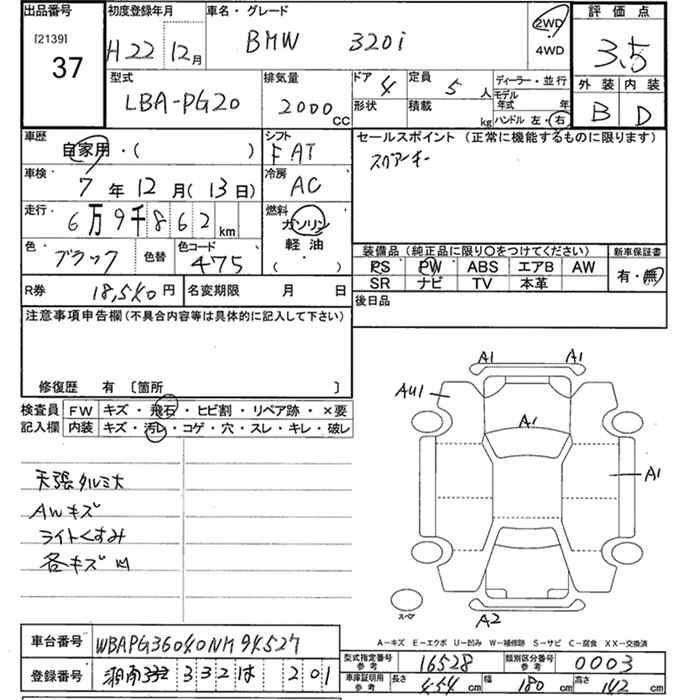 出品番号
[2139]
37
初度登録年月
H22 12月
車名・グレード
BMW 320i
2WD
・
4WD
評価点
3.5
型式
LBA-PG20
排気量
2000 CC
ドア 4
定員 5 人
形状
積載 kg
ディーラー・並行
モデル年式 年
ハンドル 左・右
外装 内装
B D
車歴
自家用・( )
シフト
FAT
セールスポイント (正常に機能するものに限ります)
スペアーキー
車検
7年12月(13日)
冷房
AC
走行
6万9千862km
燃料
ガソリン
軽油
( )
色
ブラック
色替
色コード
475
装備品(純正品に限り○をつけてください)
新車保証書
PS PW ABS エアB AW
SR ナビ TV 本革
有・無
R券 18,540円
名変期限 月 日
後日品
注意事項申告欄(不具合内容等は具体的に記入して下さい)
修復歴 有 〔箇所 〕
検査員
記入欄
FW キズ・飛石・ヒビ割・リペア跡・×要
内装 キズ・汚レ・コゲ・穴・スレ・キレ・破レ
天張タルミ大
AWキズ
ライトくすみ
各キズ小
A1 A1
AU1
A1
A1
スペア
A2
A-キズ E-エクボ U-凹み W-補修跡 S-サビ C-腐食 XX-交換済
車台番号 WBAPG36040NM94527
登録番号 湘南332 332は 201
型式指定番号
参考
16528
類別区分番号
参考
0003
車庫証明用
参考
長さ 454cm 幅 180cm 高さ 142cm